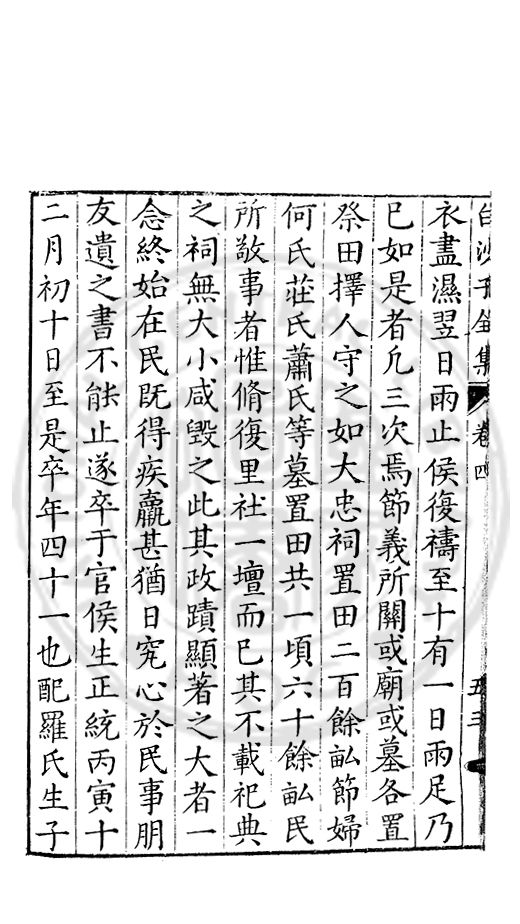 白沙子全集 卷四 五三
衣盡濕翌日雨止侯復禱至十有一日雨足乃
已如是者凢三次焉節義所關或廟或墓各置
祭田擇人守之如大忠祠置田二百餘畆節婦
何氏莊氏蕭氏等墓置田共一頃六十餘畆民
所敬事者惟脩復里社一壇而已其不載祀典
之祠無大小咸毀之此其政蹟顯著之大者一
念終始在民既得疾羸甚猶日究心於民事朋
友遺之書不能止遂卒于官侯生正統丙寅十
二月初十日至是卒年四十一也配羅氏生子